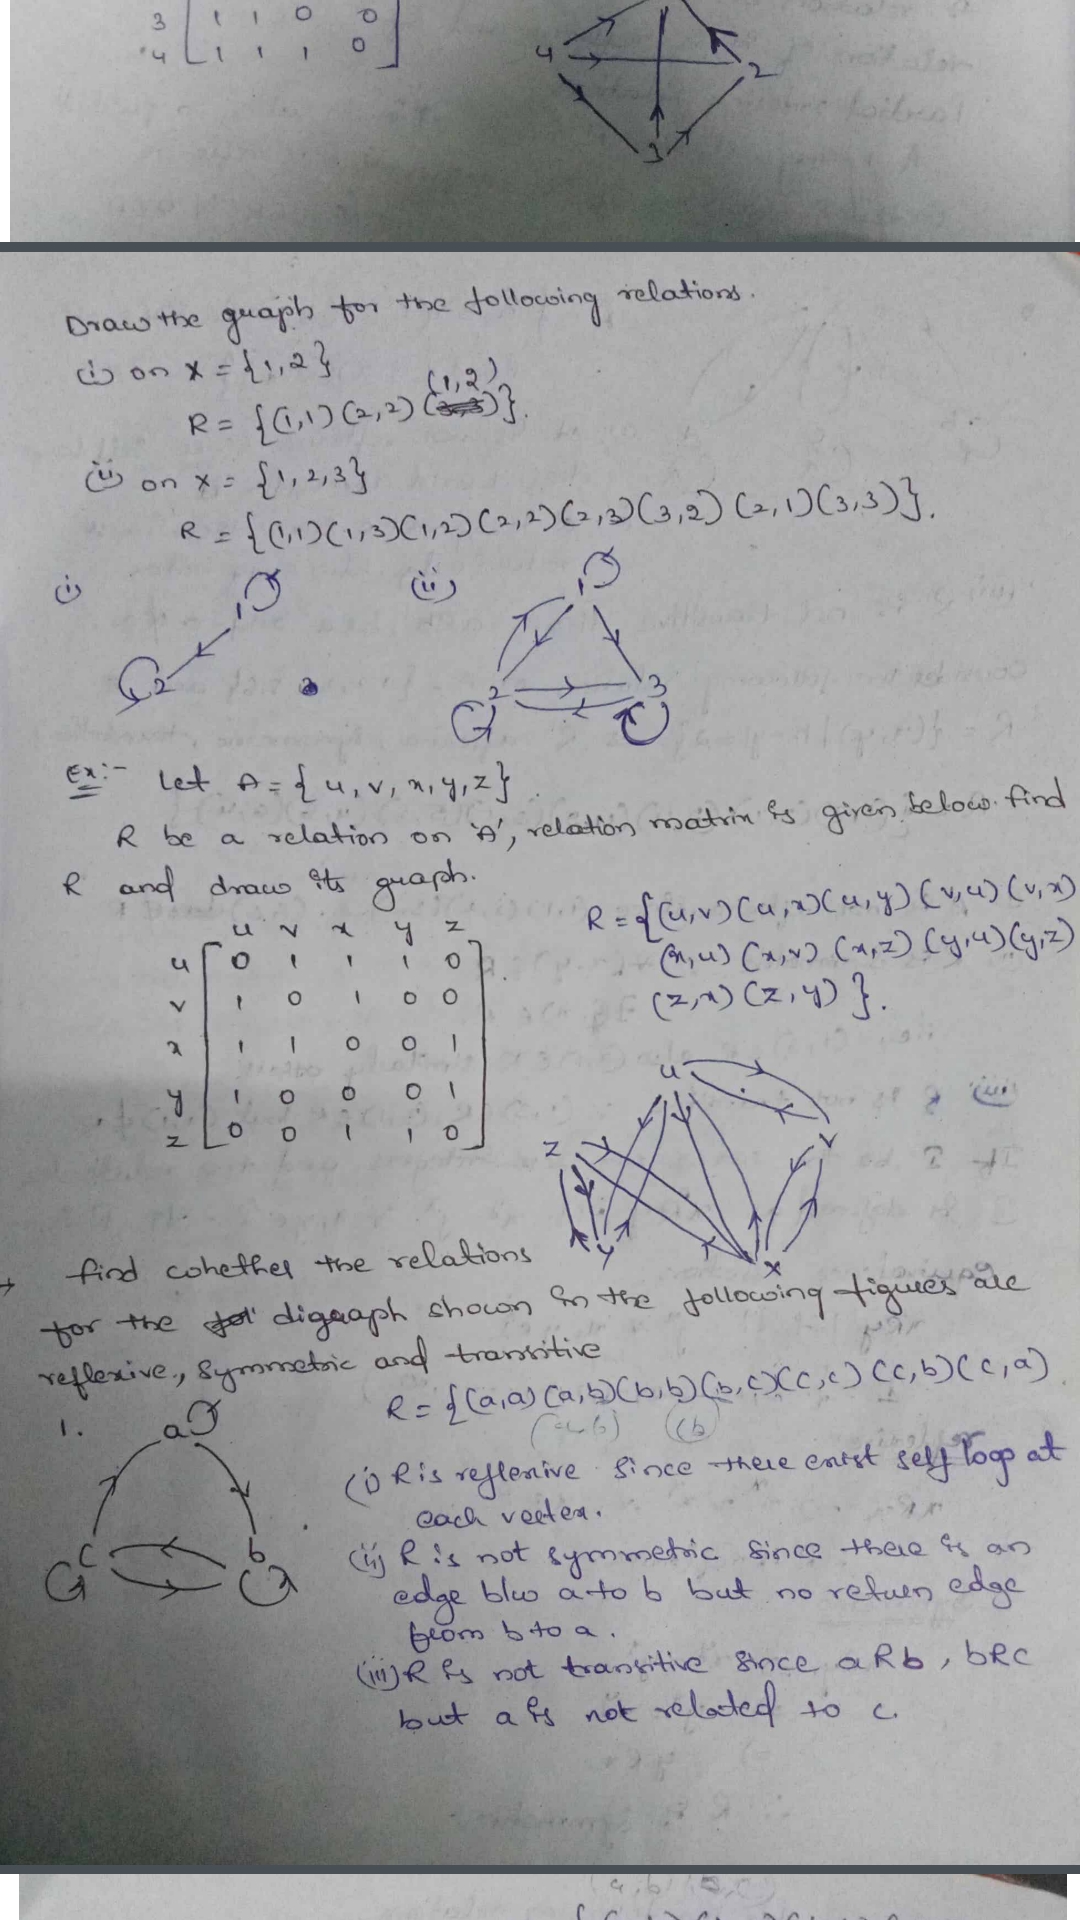 3 1 1 0 0
4 1 1 1 0
4
2
3
Draw the graph for the following relations.
(i) on x = {1,2}
(1,2)
R = {(1,1)(2,2)}.
(ii) on x = {1,2,3}
R = {(1,1)(1,3)(1,2)(2,2)(2,3)(3,2) (2,1)(3,3)}.
(i)
(ii)
1
2
1
2
3
Ex:- Let A = {u, v, x, y, z}.
R be a relation on 'A', relation matrix is given below. find
R and draw its graph.
u v x y z
u 0 1 1 1 0
v 1 0 1 0 0
x 1 1 0 0 1
y 1 0 0 0 1
z 0 0 1 1 0
R = {(u,v)(u,x)(u,y)(v,u)(v,x)
(x,u)(x,v)(x,z)(y,u)(y,z)
(z,x)(z,y)}.
u
z
v
y
x
→ find whether the relations
for the digraph shown in the following figures are
reflexive, symmetric and transitive
1.
a
c
b
R = {(a,a)(a,b)(b,b)(b,c)(c,c)(c,b)(c,a)
(i) R is reflexive since there exist self loop at
each vertex.
(ii) R is not symmetric since there is an
edge b/w a to b but no return edge
from b to a.
(iii) R is not transitive since aRb, bRc
but a is not related to c.